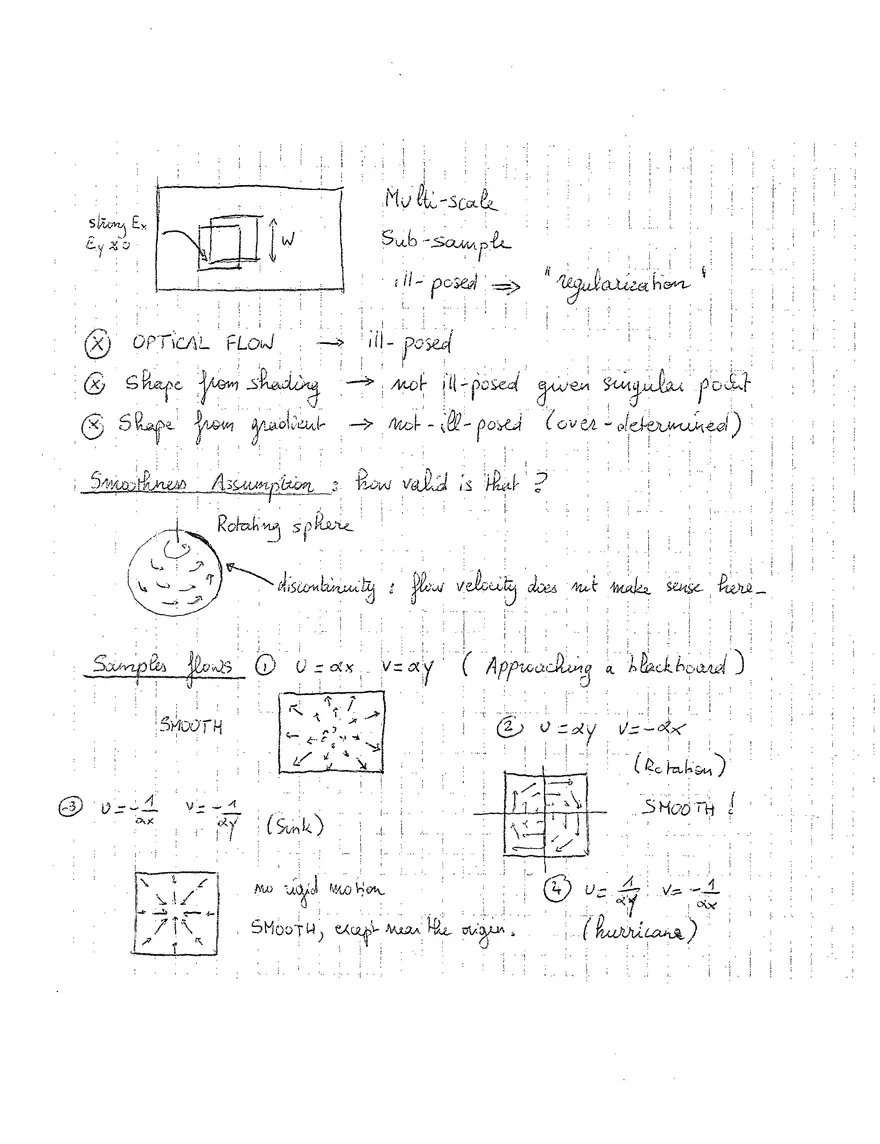 strong Ex
Ey ≈ 0
W
Multi-scale
Sub-sample
ill-posed ⇒ "regularization"
ⓧ OPTICAL FLOW → ill-posed
ⓧ Shape from shading → not ill-posed given singular point
ⓧ Shape from gradient → not-ill-posed (over-determined)
Smoothness Assumption : how valid is that ?
Rotating sphere
discontinuity : flow velocity does not make sense here_
Samples flows ① U = αx V = αy ( Approaching a blackboard )
SMOOTH
② U = αy V = -αx
(Rotation)
SMOOTH !
③ U = - 1/αx V = - 1/αy (Sink)
no rigid motion
SMOOTH, except near the origin.
④ U = 1/αy V = - 1/αx
(hurricane)